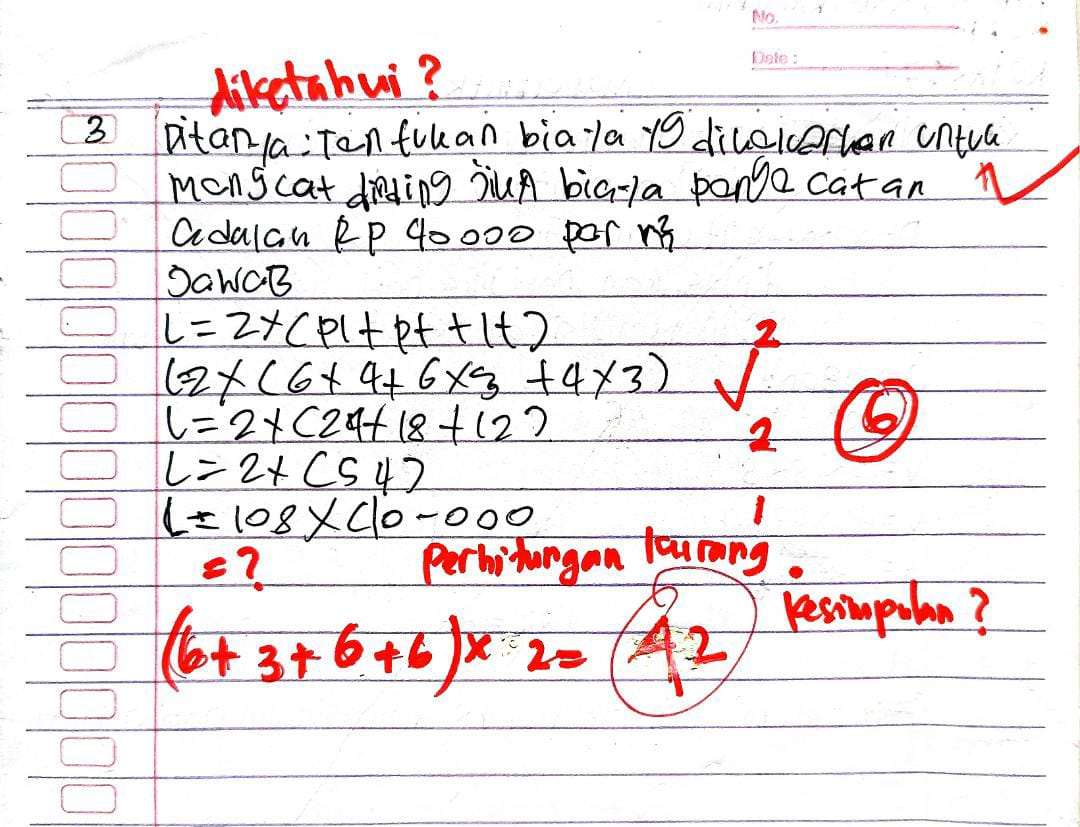 No.
Date :
diketahui ?
3 Ditanya : Tentukan biaya yg dikeluarkan untuk
mengcat dinding jika biaya pengecatan 1
adalah Rp 40000 per m²
Jawab
L = 2 x (pl + pt + lt) 2
L=2 x (6 x 4 + 6 x 3 + 4 x 3)
L = 2 x (24 + 18 + 12) 2 6
L = 2 x (54)
L = 108 x 40-000 1
= ? Perhitungan kurang.
kesimpulan ?
(6 + 3 + 6 + 6) x 2 = 42